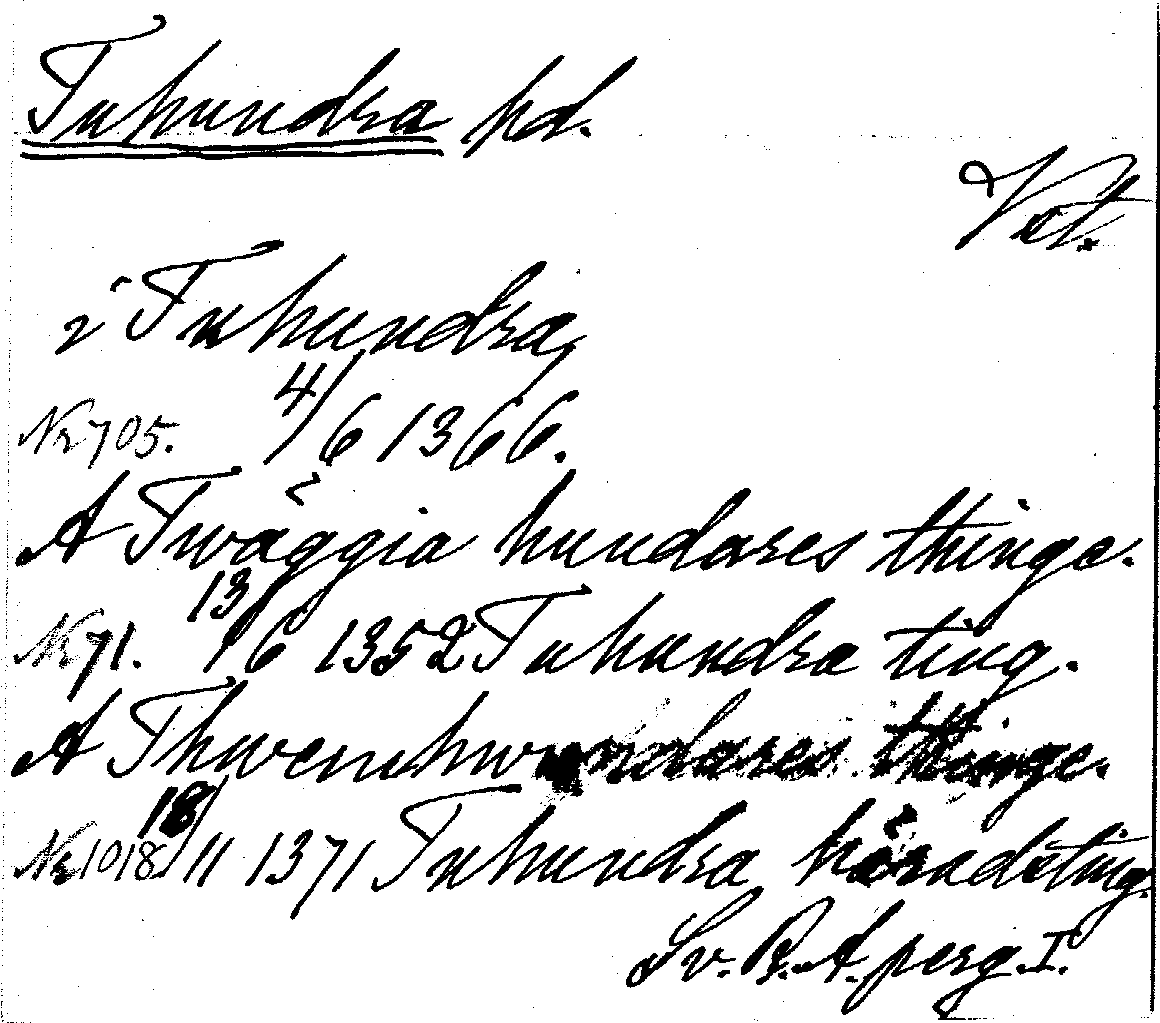 Tuhundra hd.
Vst.
i Tuhundra,
Nr 705. 4/6 1366.
A Twäggia hundares thinge.
Nr 71. 13/6 1352 Tuhundra ting.
A Thwemhwndares thinge.
Nr 1018 18/11 1371 Tuhundra häradsting.
Sv. R. A. perg. I.